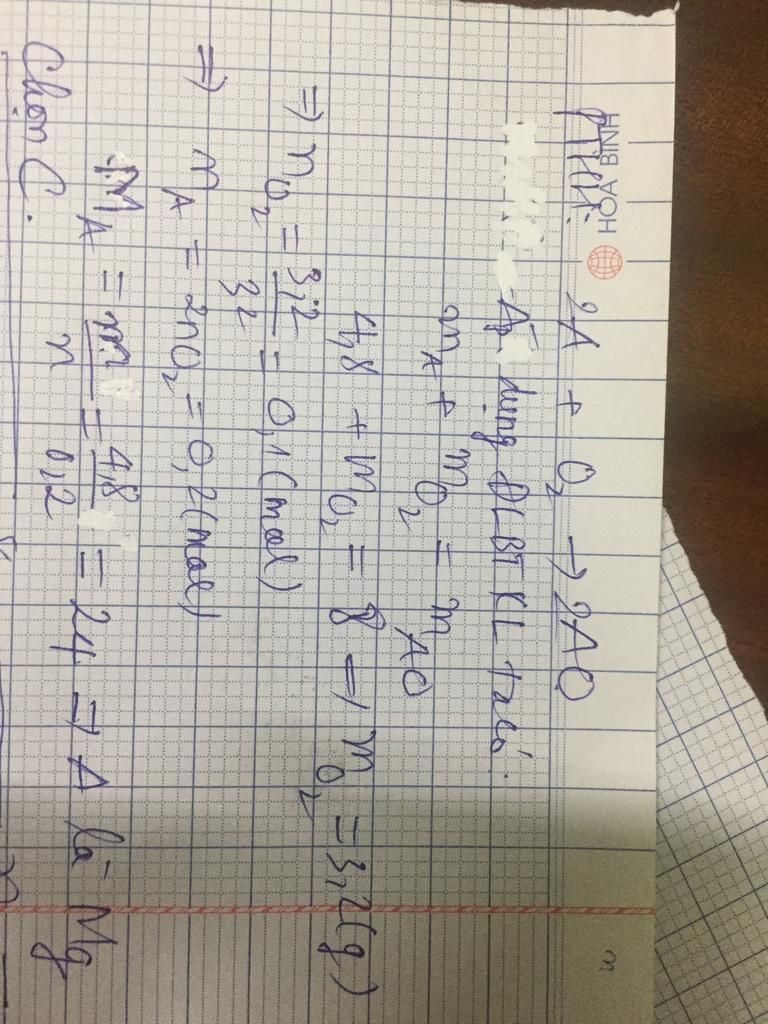 HOA BINH
PTHH: 2A + O2 → 2AO
Áp dụng ĐLBTKL ta có:
mA + mO2 = mAO
4,8 + mO2 = 8 => mO2 = 3,2(g)
=> nO2 = 3,2/32 = 0,1(mol)
=> nA = 2nO2 = 0,2(mol)
MA = m/n = 4,8/0,2 = 24 => A là Mg
Chọn C.